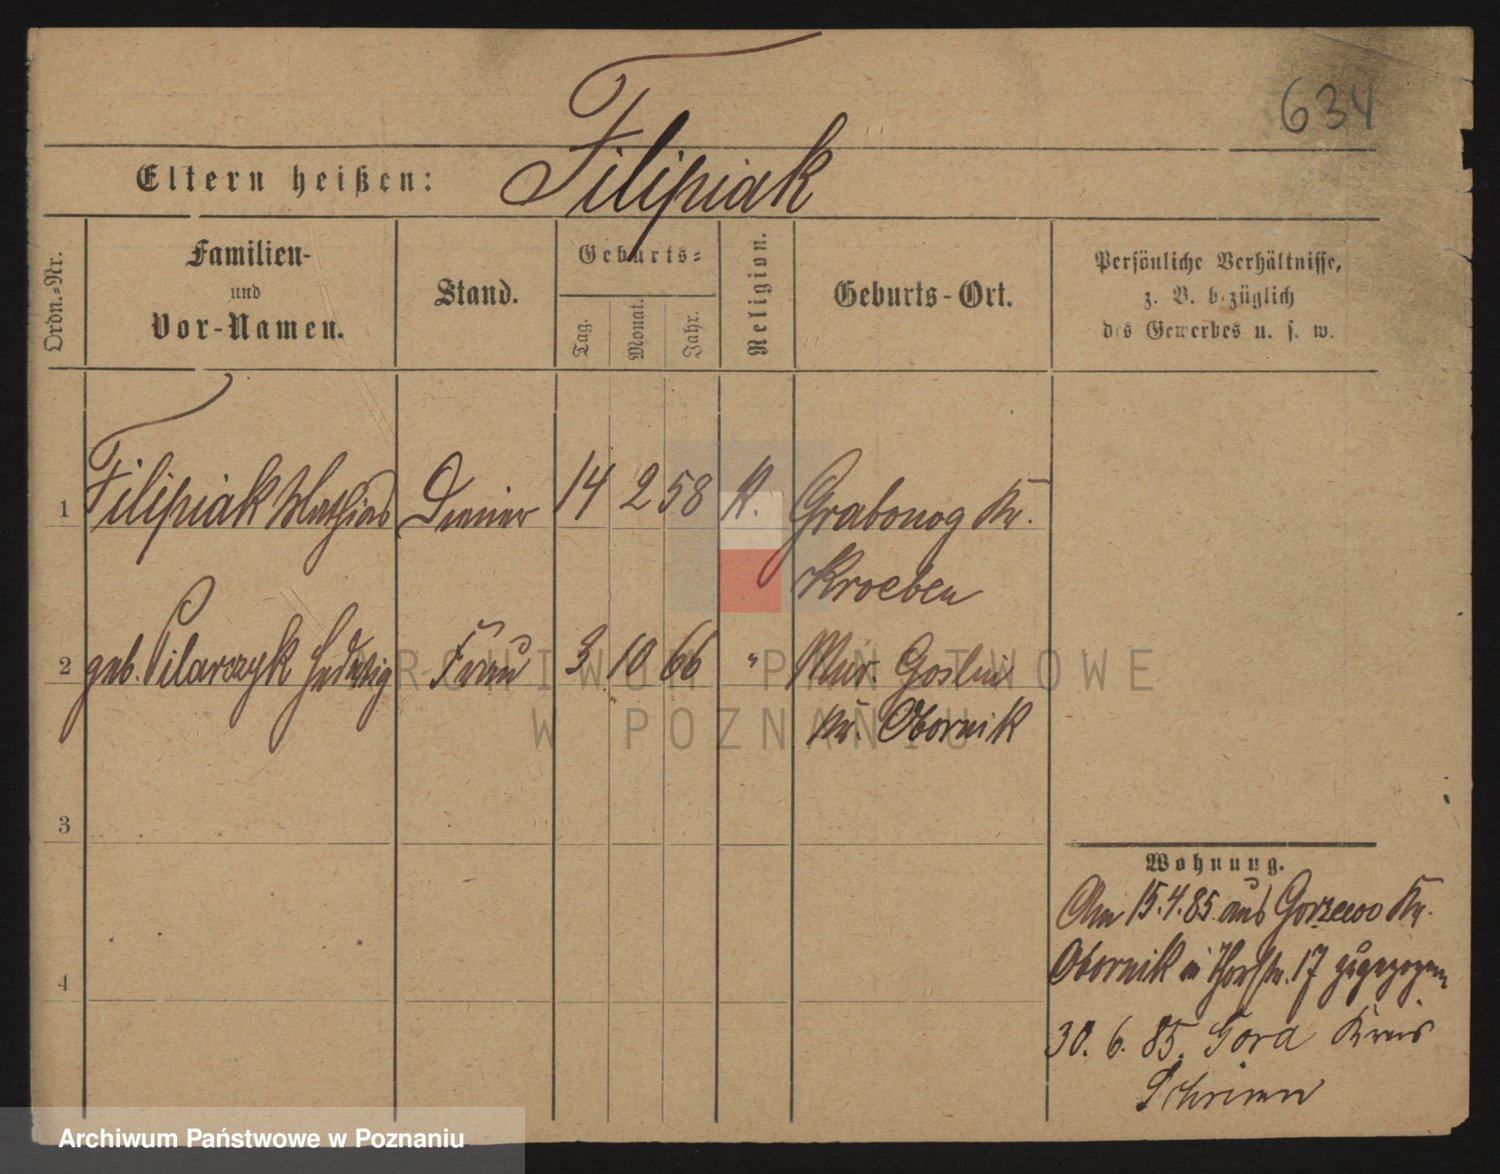 634
Eltern heißen: Filipiak
Ordn.-Nr.
Familien-
und
Vor-Namen.
Stand.
Geburts-
Tag.
Monat.
Jahr.
Religion.
Geburts-Ort.
Persönliche Verhältnisse,
z. B. bezüglich
des Gewerbes u. s. w.
1 Filipiak Mathias Diener 14 2 58 K. Grabonog Kr.
Kroeben
2 geb. Pilarczyk Hedwig Frau 3 10 66 " Mur. Goslin
Kr. Obornik
3
4
Wohnung.
Am 15.4.85 aus Gorzewo Kr.
Obornik 17 zugezogen
30. 6. 85. Gora Kreis
Schrimm
ARCHIWUM PAŃSTWOWE
W POZNANIU
Archiwum Państwowe w Poznaniu